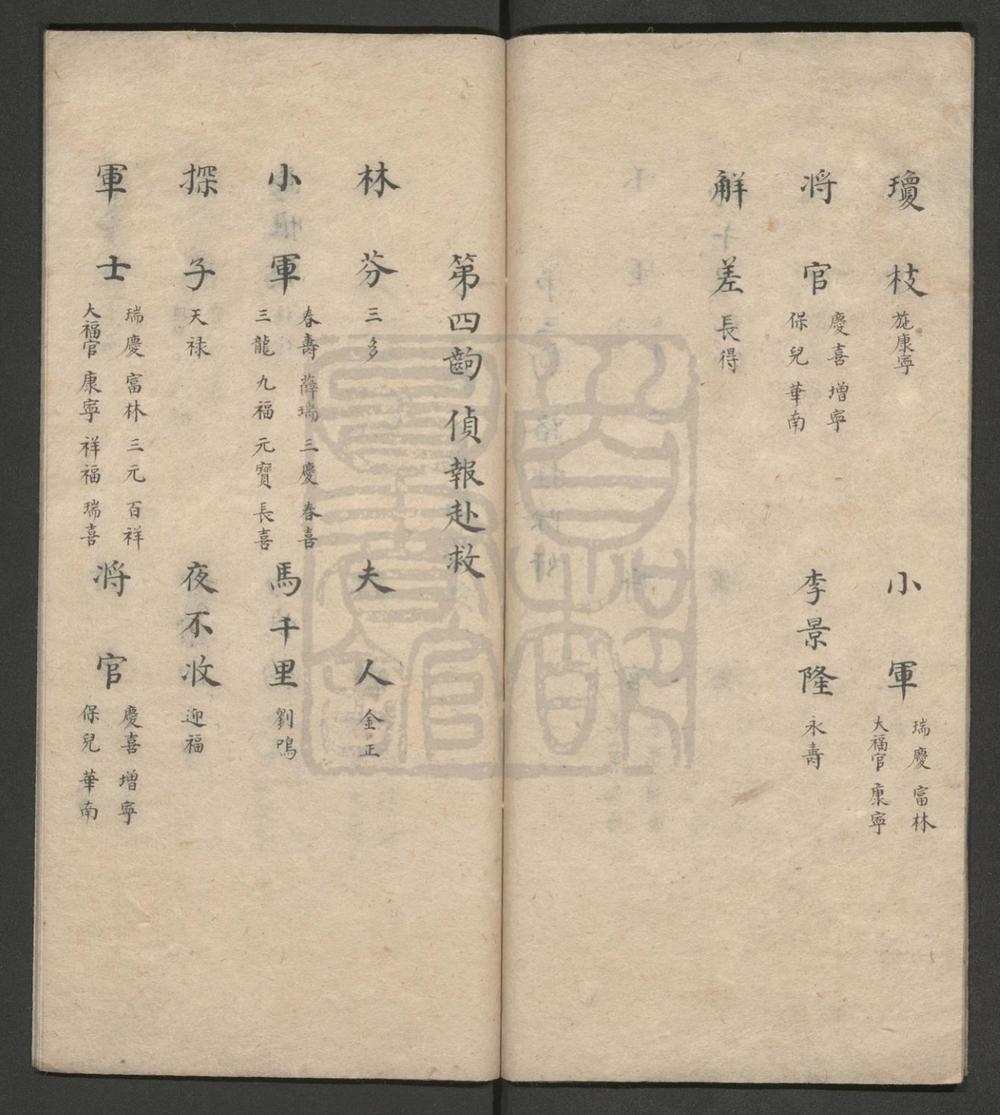 瓊枝 施康寧
小軍 瑞慶 富林
大福官 康寧
将官 慶喜 增寧
保兒 華南
李景隆 永壽
觧差 長得
第四齣 偵報赴救
林芬 三多
夫人 金正
小軍 春壽 薛瑞 三慶 春喜
三龍 九福 元寶 長喜
馬千里 劉鴞
探子 天禄
夜不收 迎福
軍士 瑞慶 富林 三元 百祥
大福官 康寧 祥福 瑞喜
将官 慶喜 增寧
保兒 華南